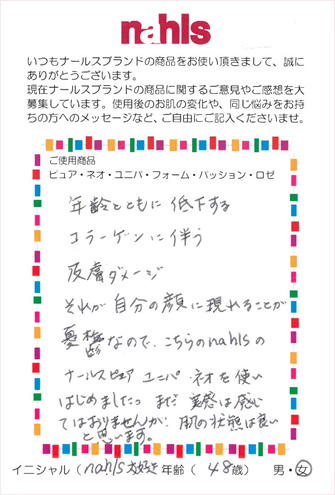 nahls
いつもナールスブランドの商品をお使い頂きまして、誠に
ありがとうございます。
現在ナールスブランドの商品に関するご意見やご感想を大
募集しています。使用後のお肌の変化や、同じ悩みをお持
ちの方へのメッセージなど、ご自由にご記入くださいませ。
ご使用商品
ピュア・ネオ・ユニバ・フォーム・パッション・ロゼ
年齢とともに 低下する
コラーゲンに伴う
皮膚ダメージ
それが自分の顔に現れることが
憂鬱なので、こちらのnahlsの
ナールスピュア ユニバ ネオを使い
はじめましたっ まだ 実感は感じ
てはありませんが、肌の状態は良い
と思います。
イニシャル（nahls大好き 年齢（48歳） 男・女